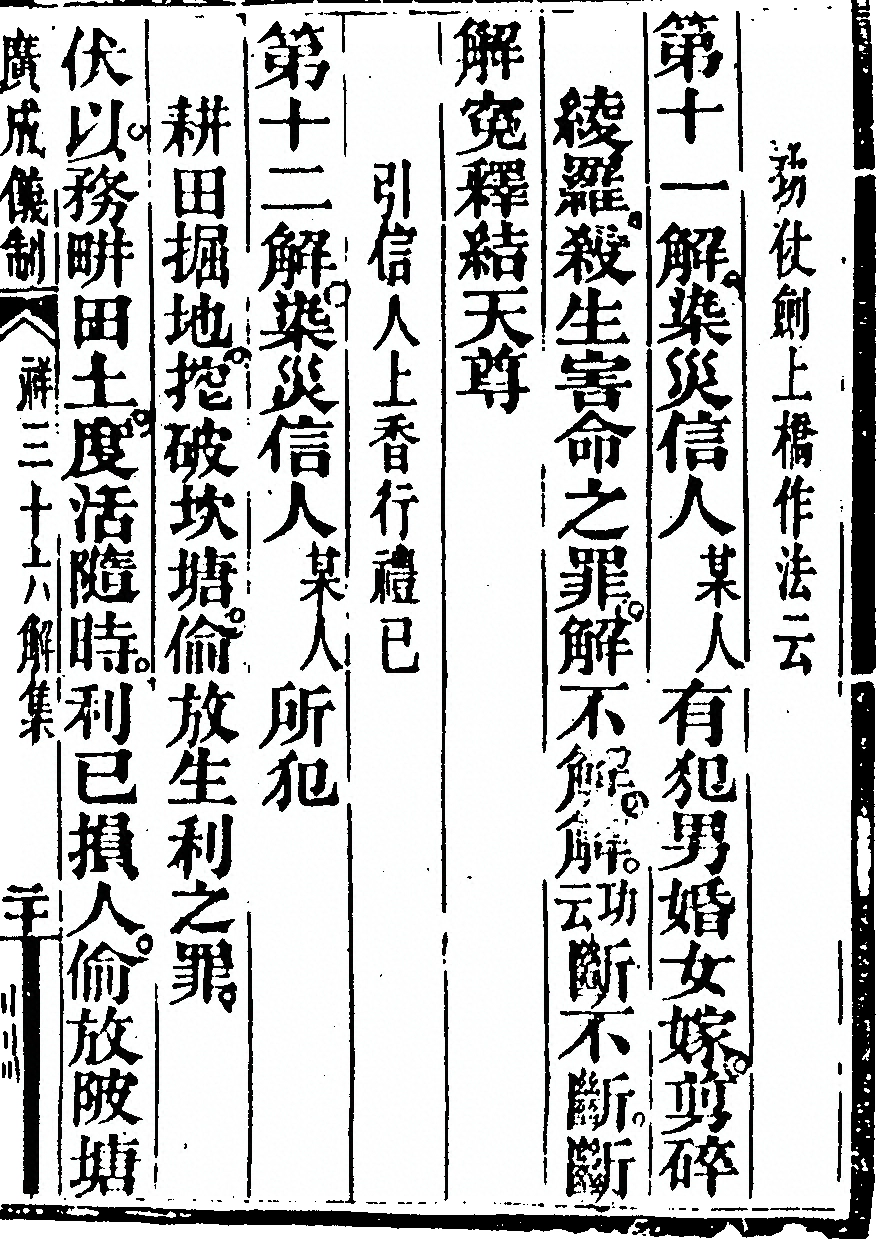 功仗劍上橋作法云
第十一解染災信人某人有犯男婚女嫁剪碎
綾羅殺生害命之罪解不解解功云斷不斷斷
解寃釋結天尊
引信人上香行禮已
第十二解染災信人某人所犯
耕田掘地挖破坎塘偷放生利之罪
伏以務畊田土度活隨時利已損人偷放陂塘
廣成儀制
祥三十六解集
二十